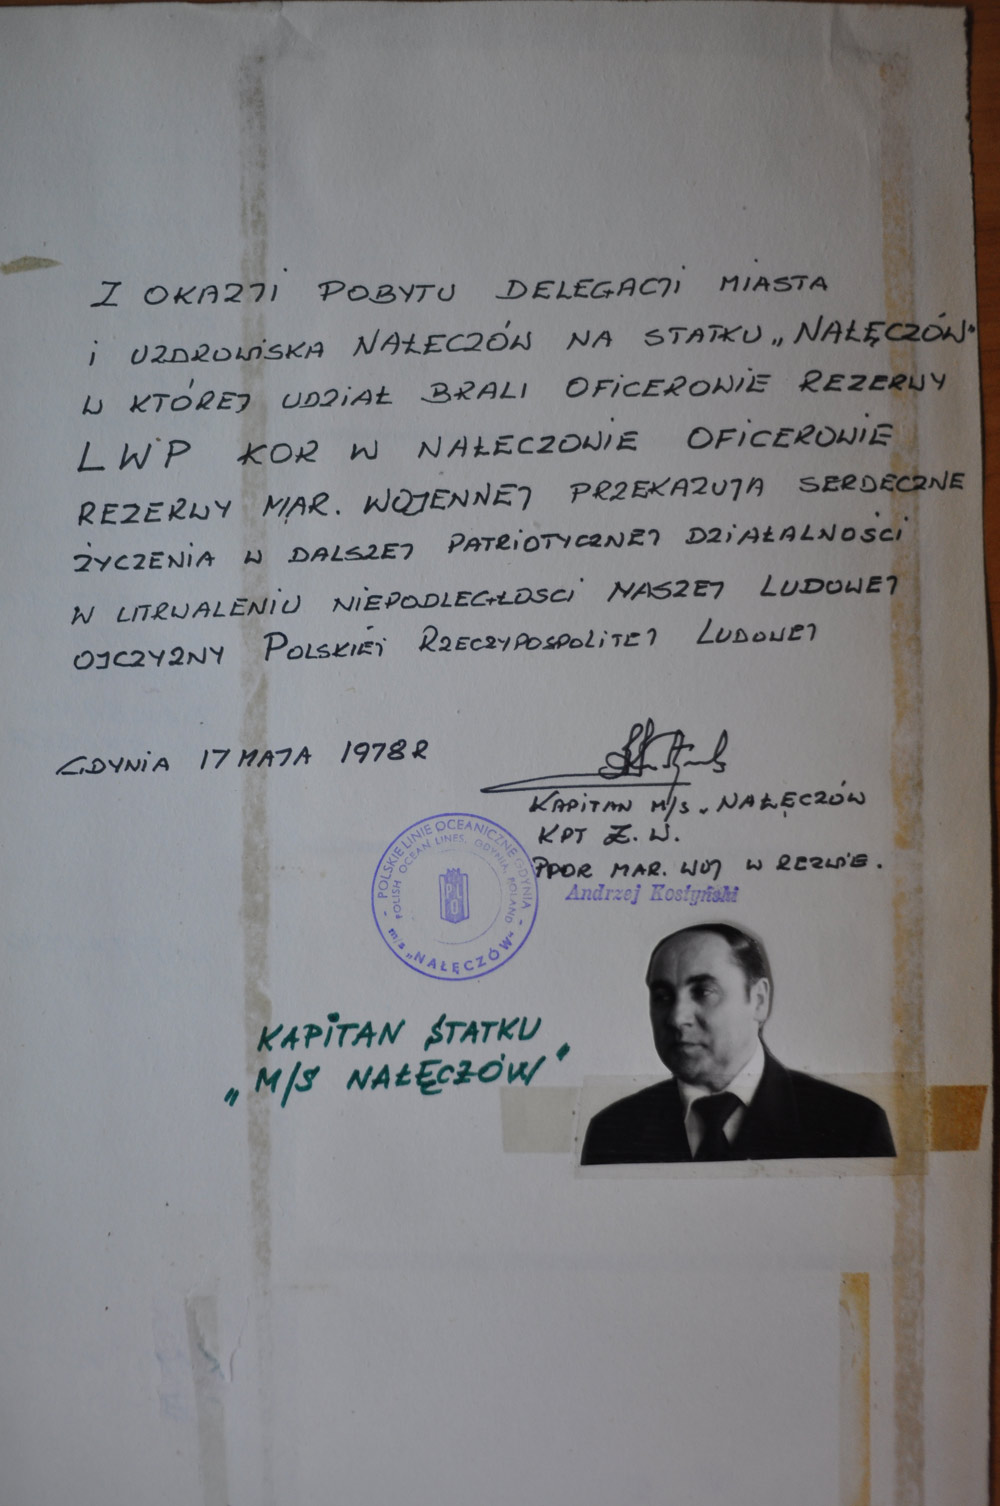 Z OKAZJI POBYTU DELEGACJI MIASTA
i UZDROWISKA NAŁECZÓW NA STATKU „NAŁĘCZÓW"
W KTÓREJ UDZIAŁ BRALI OFICEROWIE REZERWY
LWP KOR W NAŁECZOWIE OFICEROWIE
REZERWY MAR. WOJENNEJ PRZEKAZUJA SERDECZNE
ŻYCZENIA W DALSZEJ PATRIOTYCZNEJ DZIAŁALNOŚCI
W UTRWALENIU NIEPODLEGŁOSCI NASZEJ LUDOWEJ
OJCZYZNY POLSKIEJ RZECZYPOSPOLITEJ LUDOWEJ
GDYNIA 17 MAJA 1978 R
KAPITAN M/S „NAŁĘCZÓW
KPT Ż. W.
PPOR MAR. WOJ W REZWIE.
Andrzej Kostyński
POLSKIE LINIE OCEANICZNE GDYNIA
POLISH OCEAN LINES, GDYNIA, POLAND
PLO
m/s „NAŁĘCZÓW"
KAPITAN STATKU
„M/S NAŁĘCZÓW"